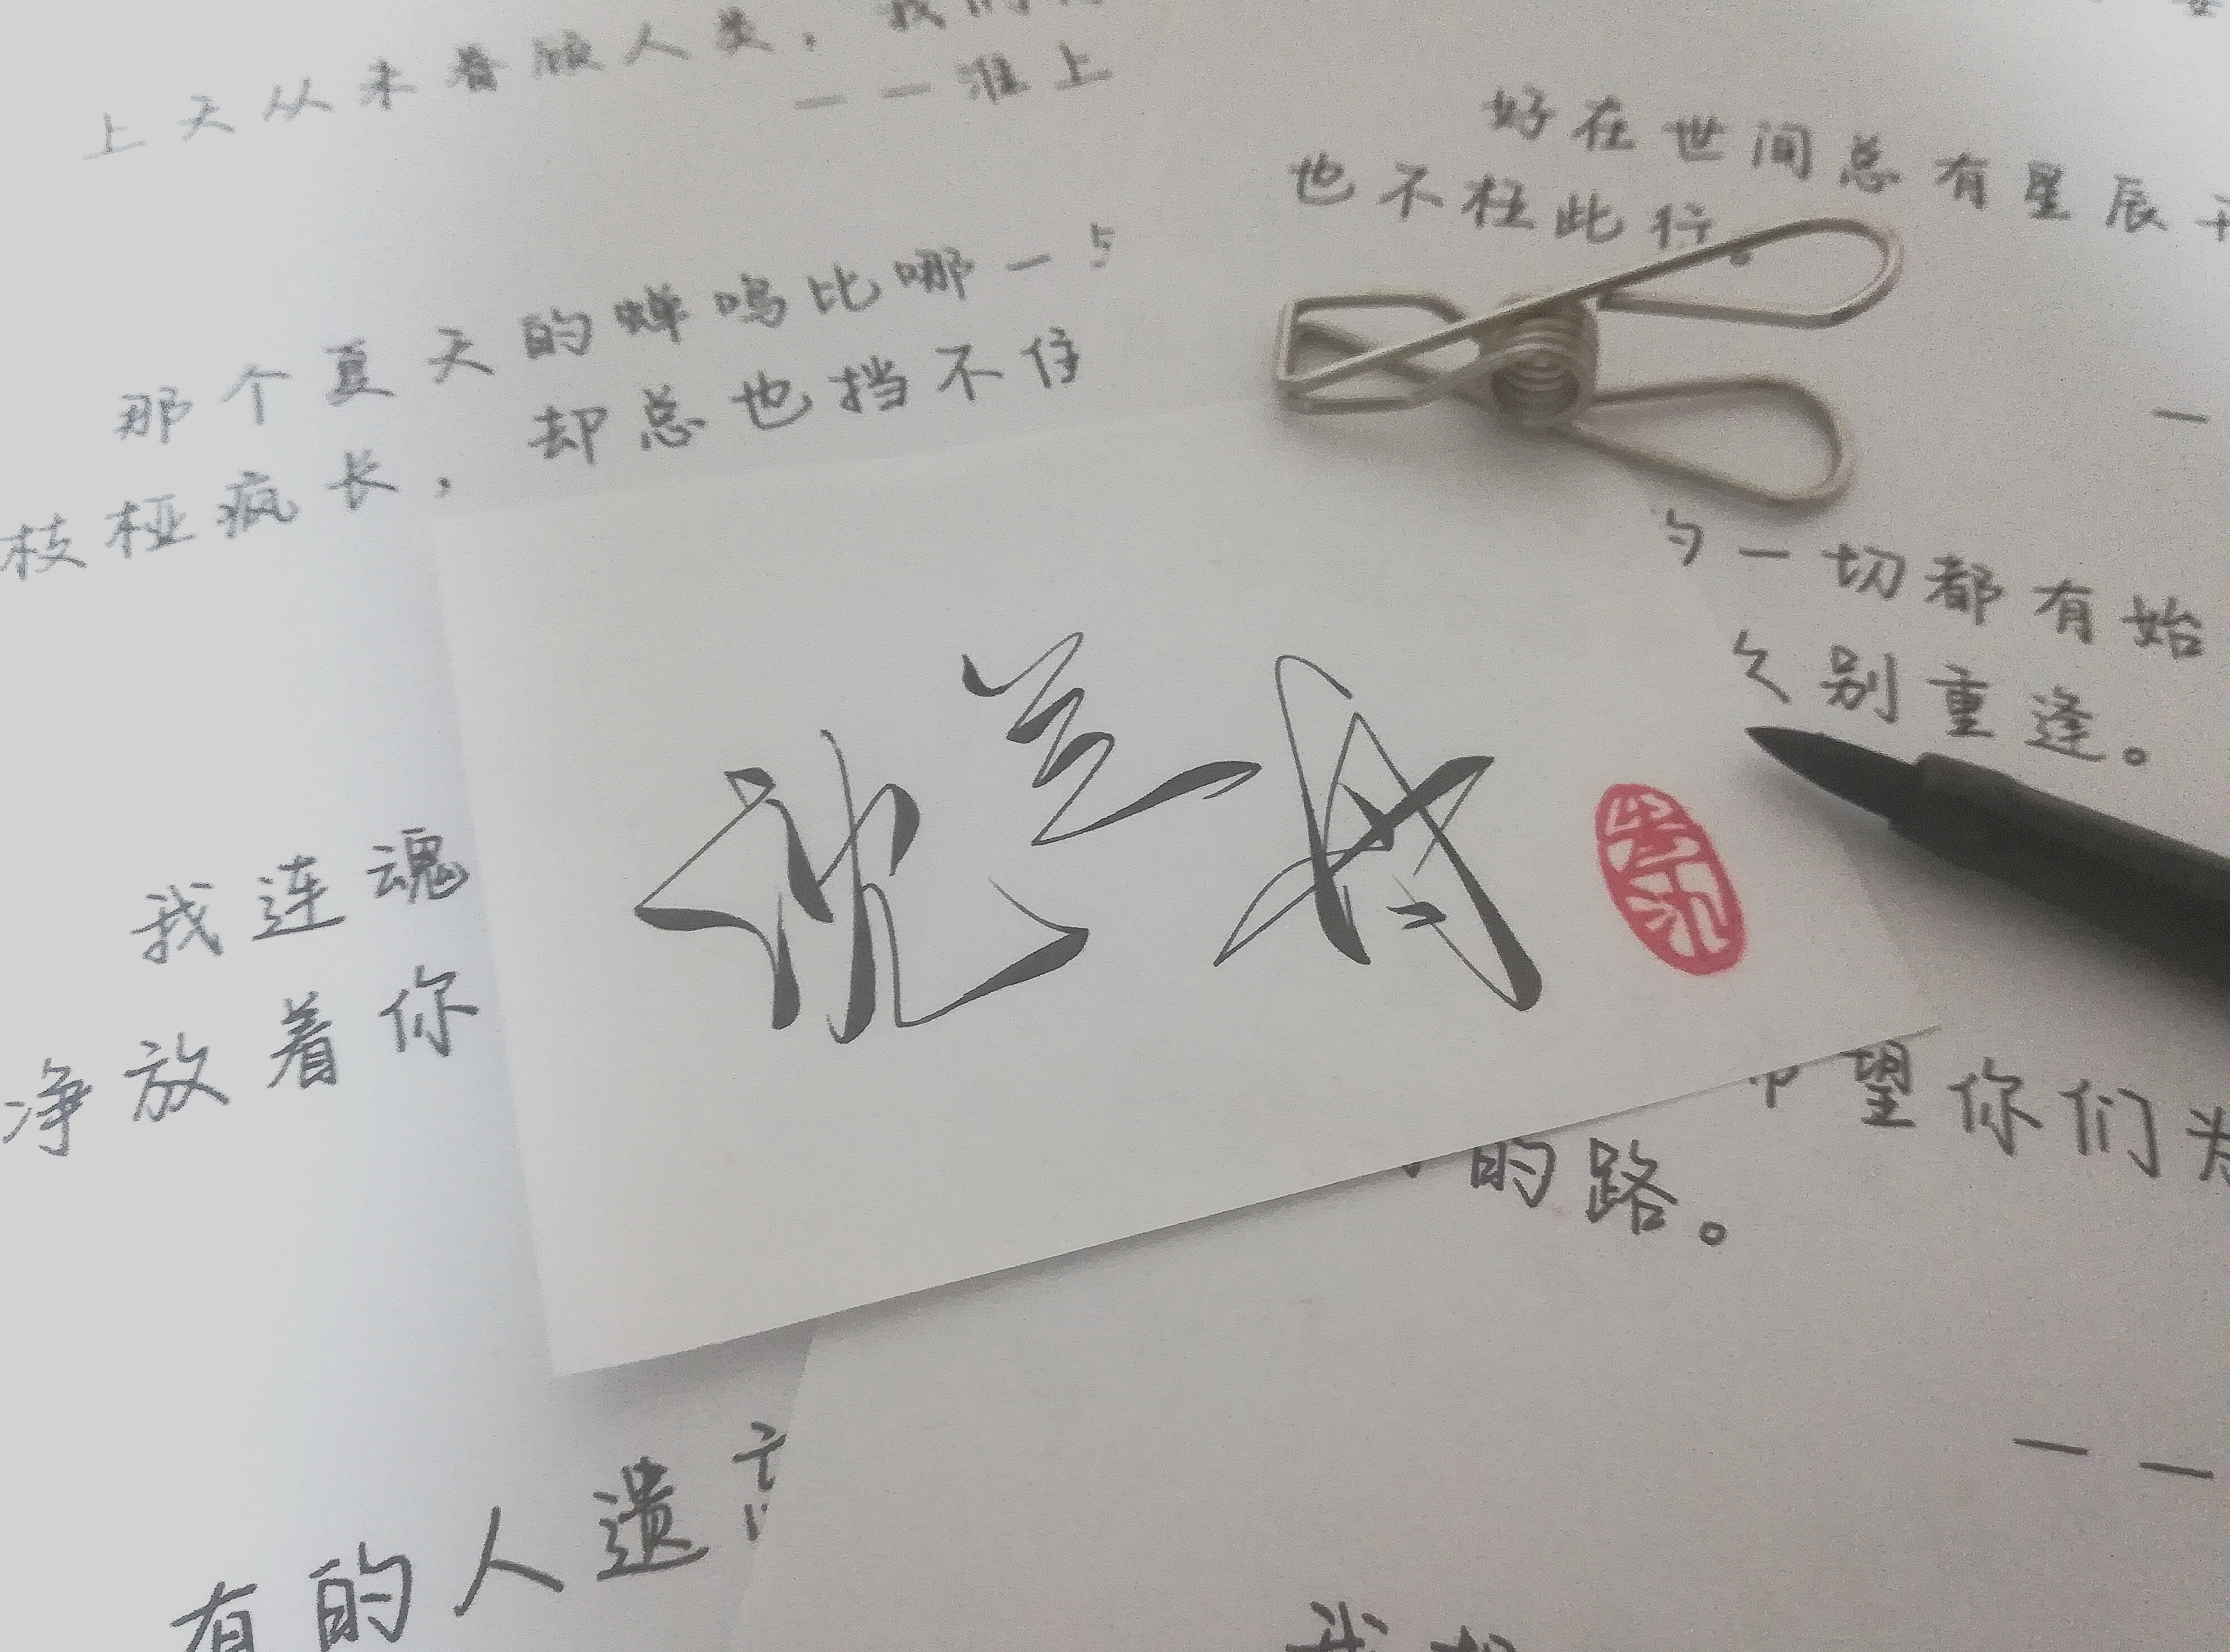 上天从未眷顾人类，我们
——淮上
那个夏天的蝉鸣比哪一
枝桠疯长，却总也挡不住
好在世间总有星辰
也不枉此行。
一切都有始
别重逢。
我连魂
净放着你
沈兰舟
希望你们为
的路。
有的人遗
——
我